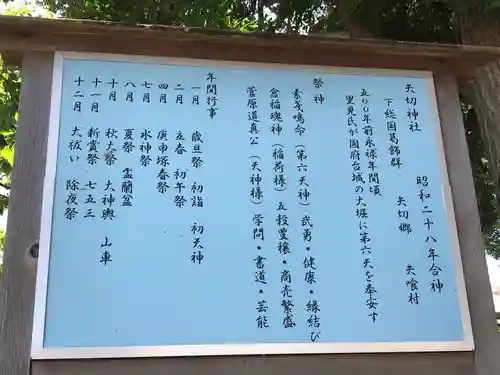 矢切神社
昭和二十八年合神
下総国葛飾群 矢切郷 矢喰村
五〇〇年前永禄年間頃
里見氏が国府台城の大堀に第六天を奉安す
祭神
素戔鳴命(第六天神)武勇・健康・縁結び
倉稲魂神(稲荷様)五穀豊穣・商売繁盛
菅原道真公(天神様)学問・書道・芸能
年間行事
一月 歳旦祭 初詣 初天神
二月 立春 初午祭
四月 庚申塚春祭
七月 水神祭
八月 夏祭 盂蘭盆
十月 秋大祭 大神輿 山車
十一月 新嘗祭 七五三
十二月 大祓い 除夜祭